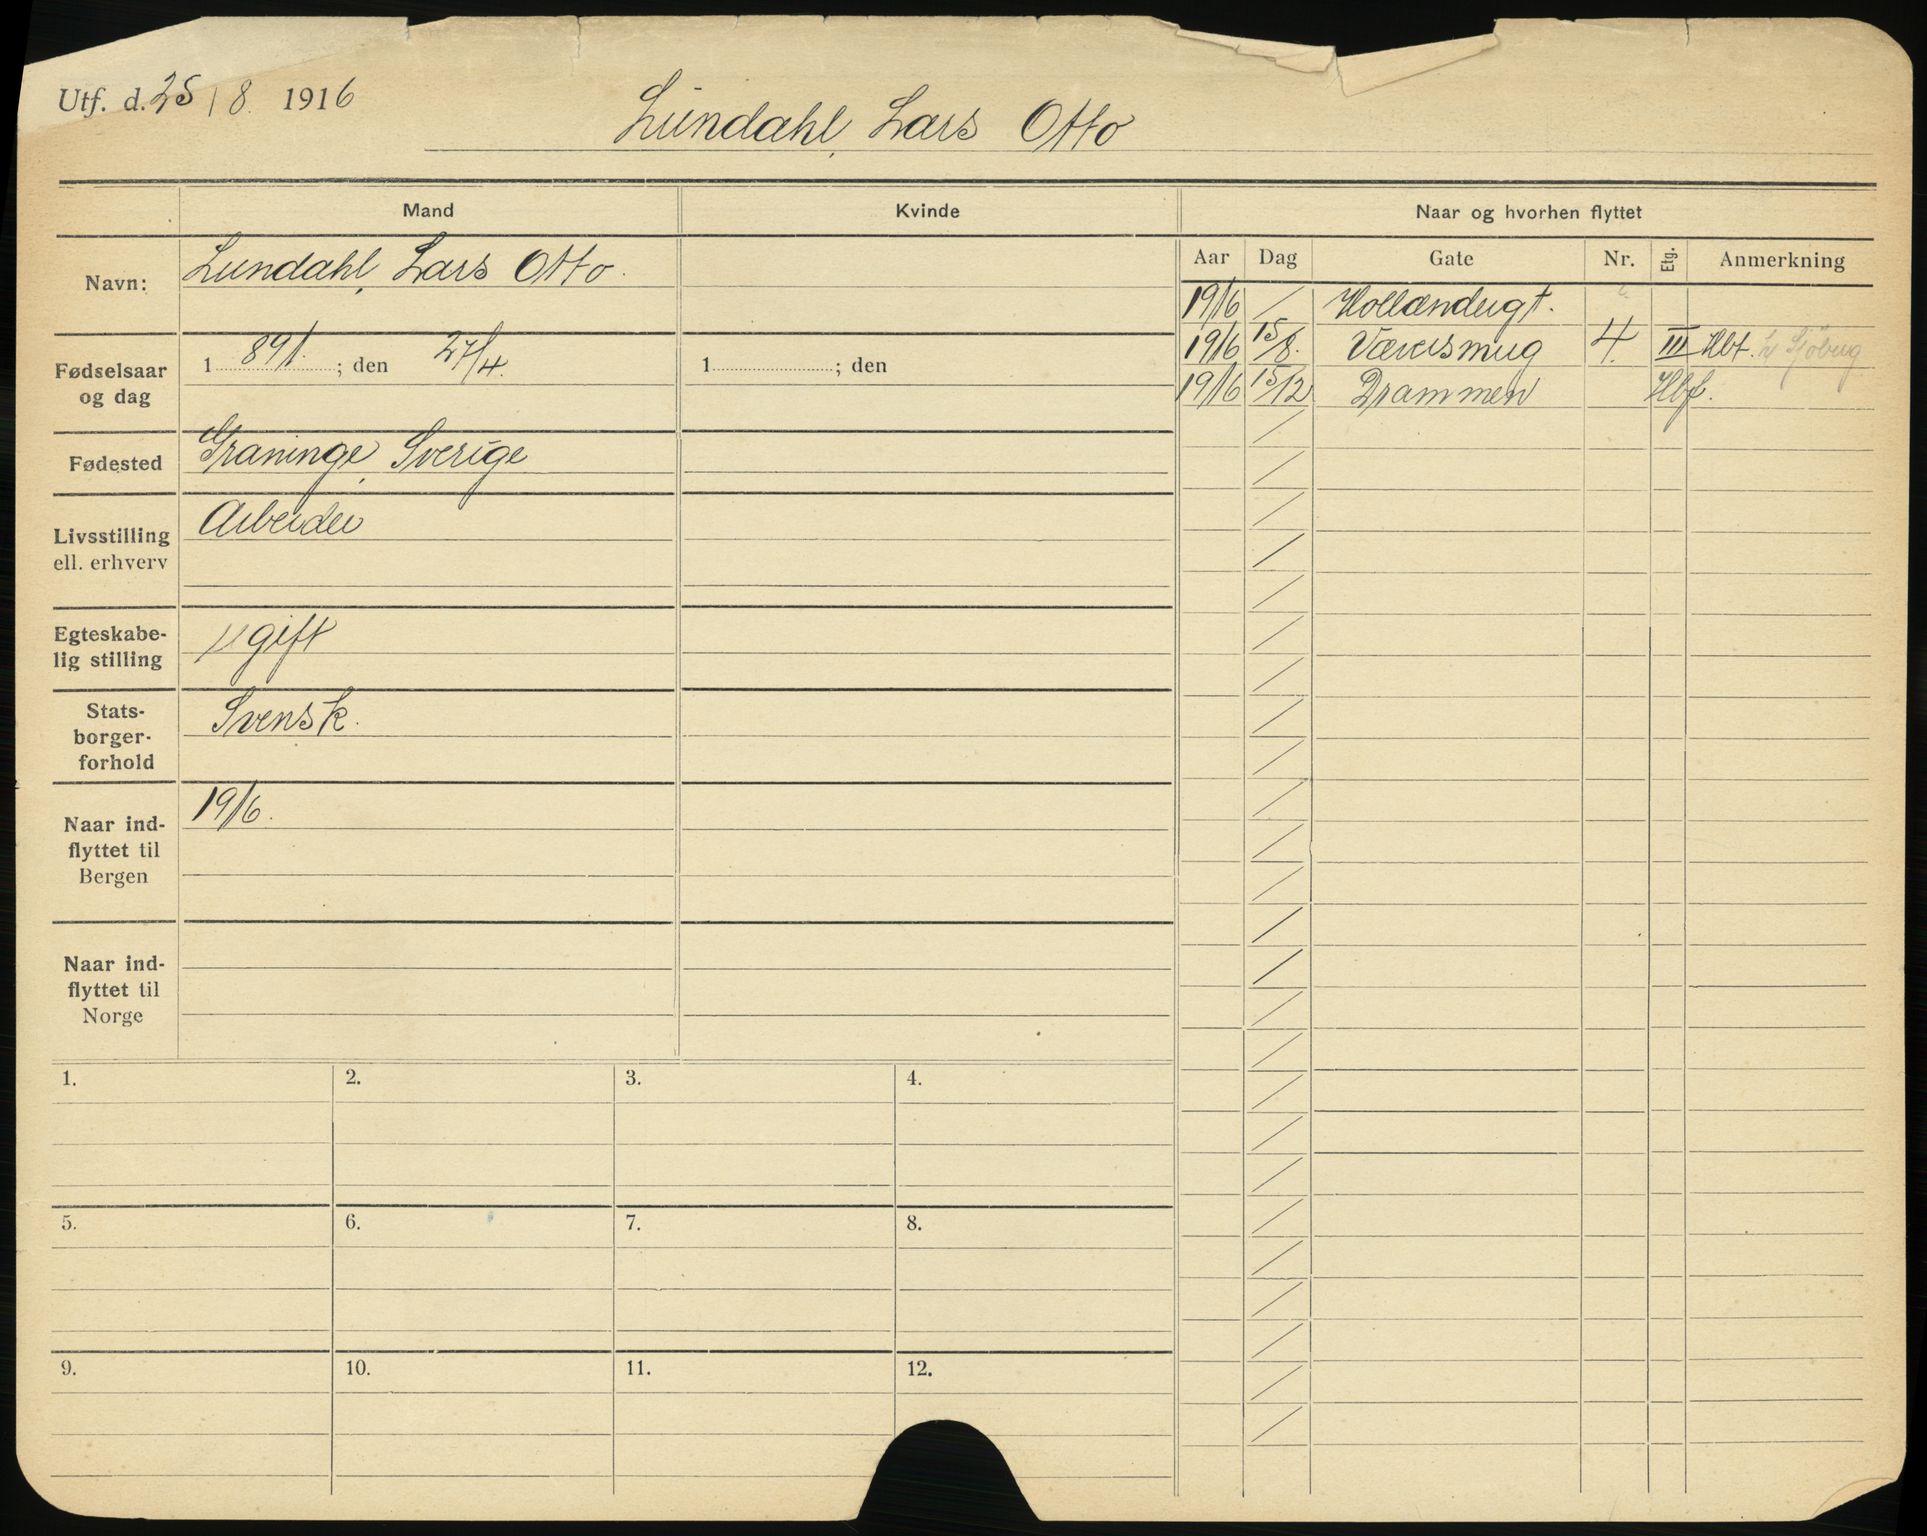 Utf. d. 25/8. 1916
Lundahl, Lars Otto
Mand Kvinde Naar og hvorhen flyttet
Aar Dag Gate Nr. Etg. Anmerkning
Navn: Lundahl, Lars Otto.
1916 / Hollændergt.
1916 15/8. 4. III Hbf.
1916 15/12 Drammen Hbf.
Fødselsaar og dag 1 891. ; den 27/4. 1 ; den
Fødested Graninge, Sverige
Livsstilling ell. erhverv Arbeider
Egteskabe-
lig stilling ugift
Stats-
borger-
forhold Svensk.
Naar ind-
flyttet til
Bergen 1916.
Naar ind-
flyttet til
Norge
1. 2. 3. 4.
5. 6. 7. 8.
9. 10. 11. 12.